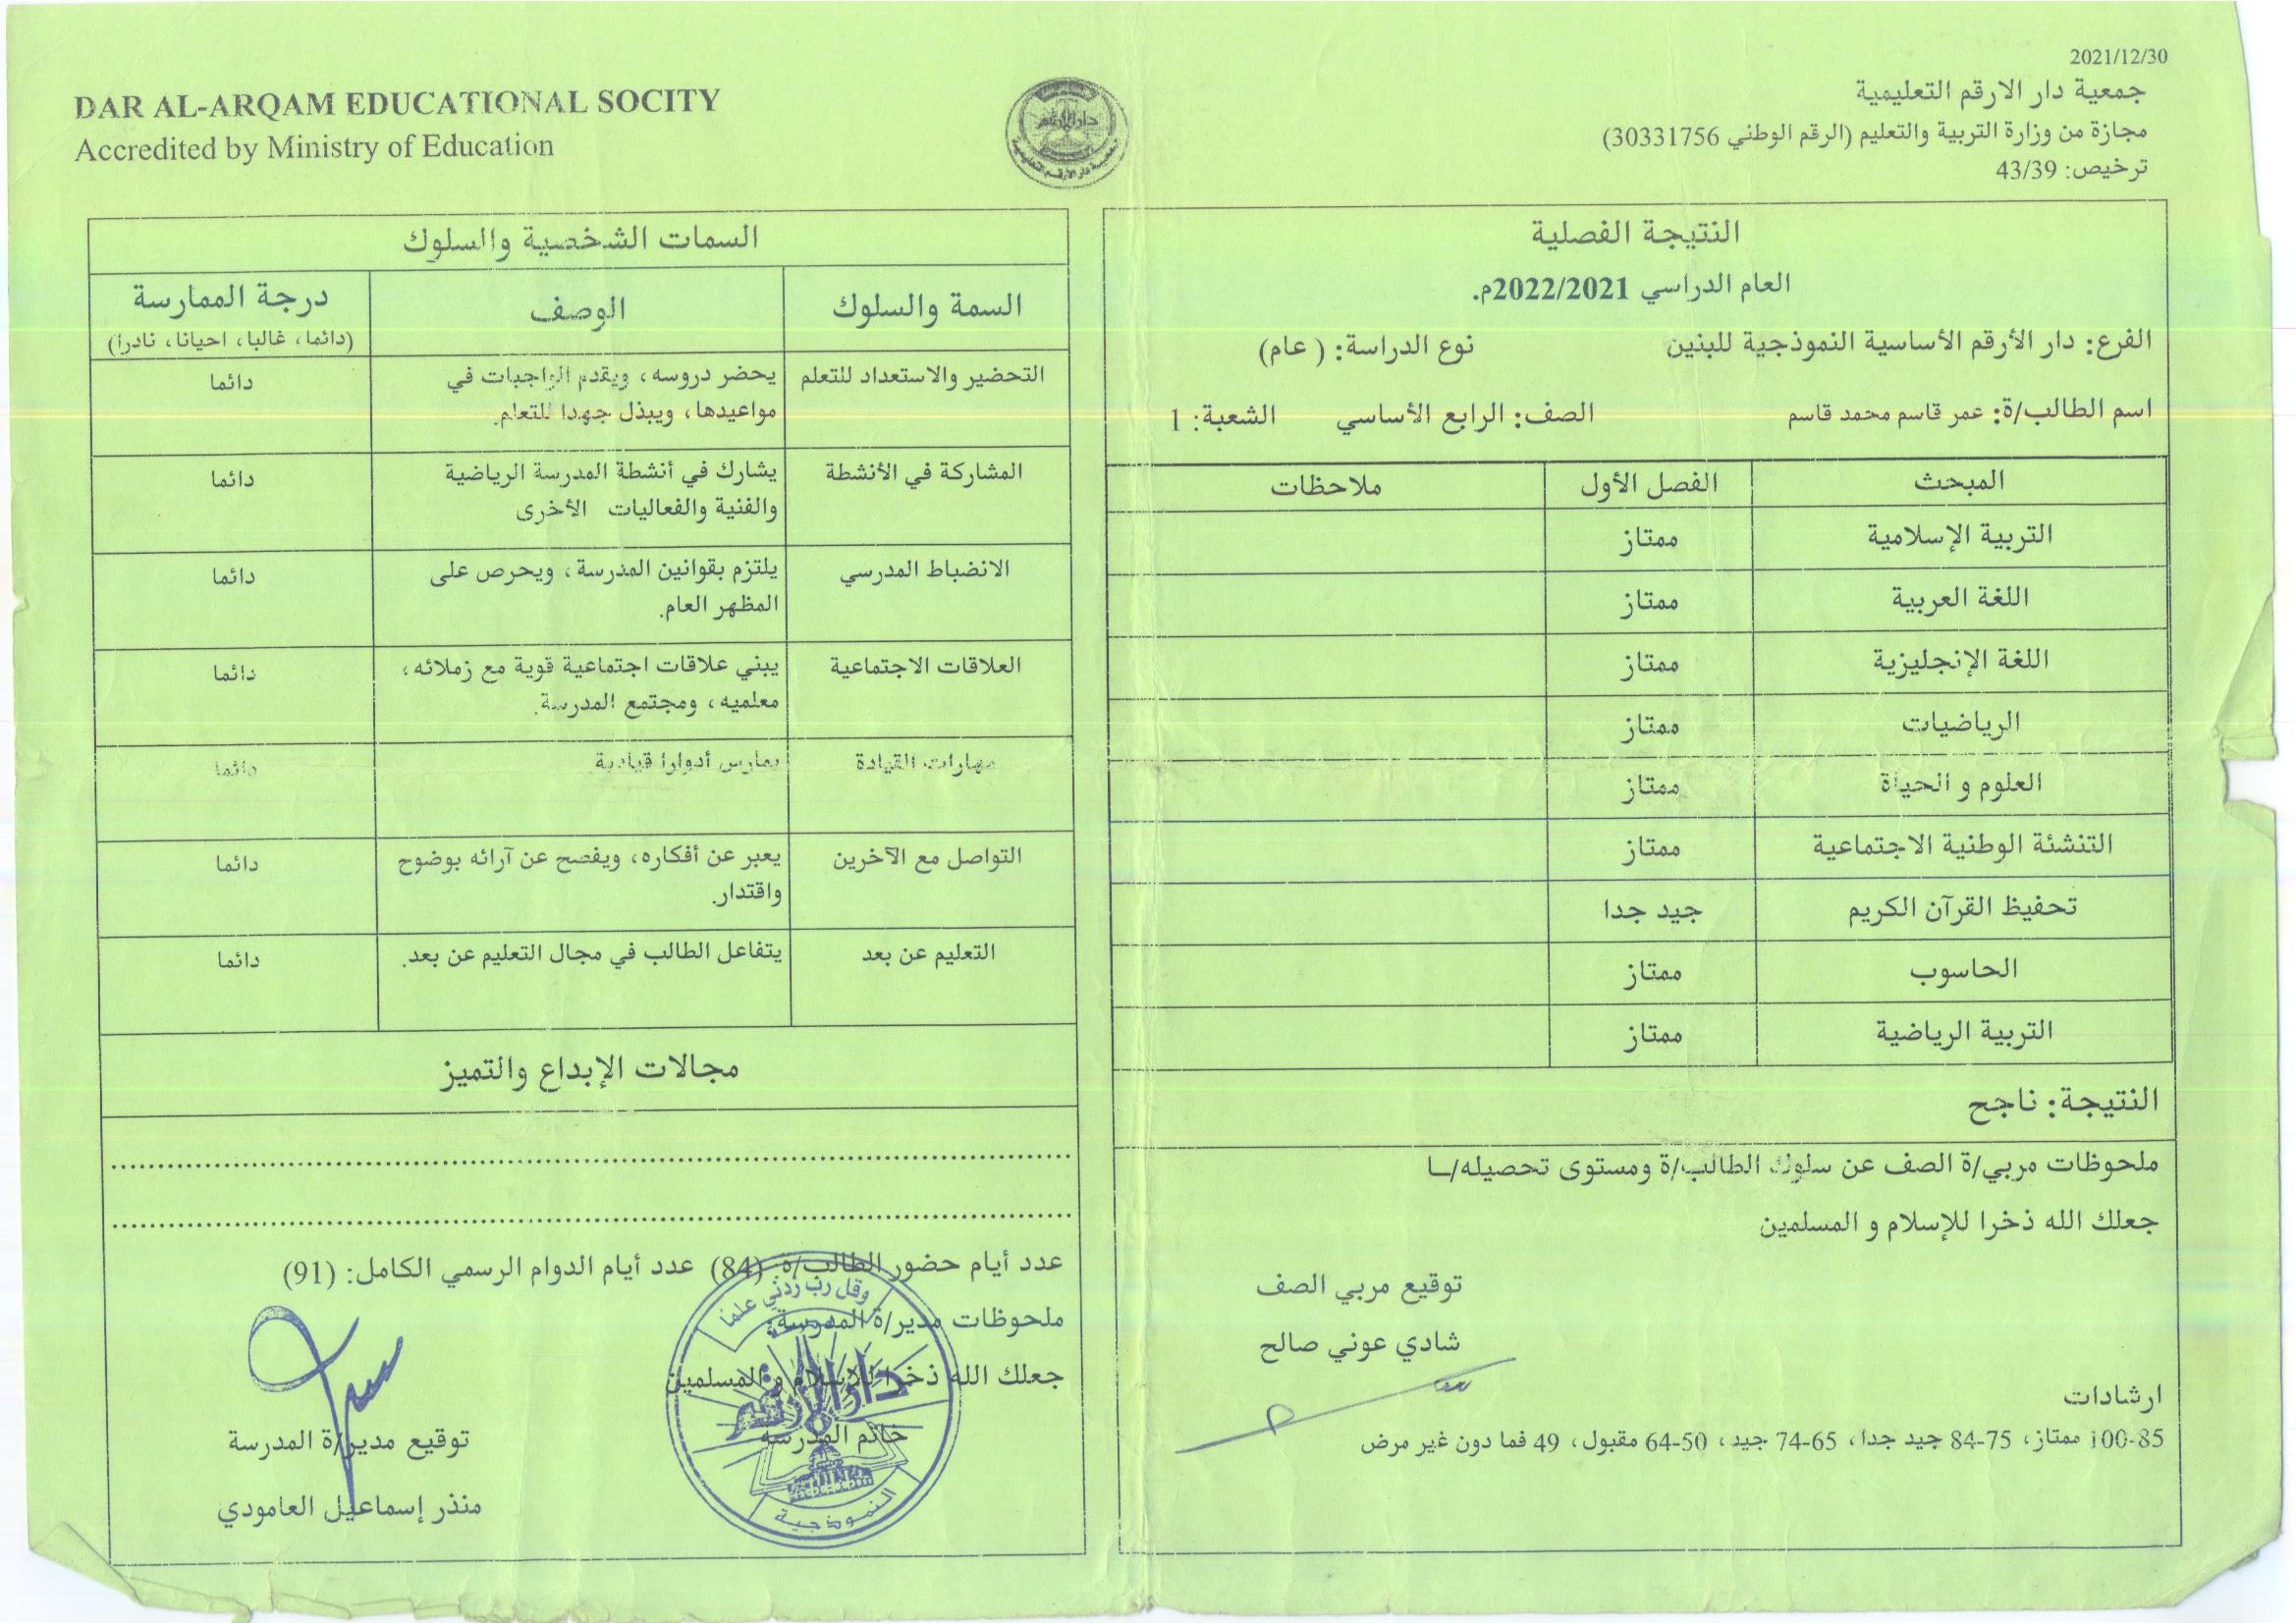 2021/12/30
جمعية دار الارقم التعليمية
مجازة من وزارة التربية والتعليم (الرقم الوطني 30331756)
ترخيص: 43/39
DAR AL-ARQAM EDUCATIONAL SOCITY
Accredited by Ministry of Education
دار الأرقم
جمعية دار الأرقم التعليمية
النتيجة الفصلية
العام الدراسي 2022/2021م.
الفرع: دار الأرقم الأساسية النموذجية للبنين نوع الدراسة: ( عام)
اسم الطالب/ة: عمر قاسم محمد قاسم الصف: الرابع الأساسي الشعبة: 1
المبحث الفصل الأول ملاحظات
التربية الإسلامية ممتاز
اللغة العربية ممتاز
اللغة الإنجليزية ممتاز
الرياضيات ممتاز
العلوم و الحياة ممتاز
التنشئة الوطنية الاجتماعية ممتاز
تحفيظ القرآن الكريم جيد جدا
الحاسوب ممتاز
التربية الرياضية ممتاز
النتيجة: ناجح
ملحوظات مربي/ة الصف عن سلوك الطالب/ة ومستوى تحصيله/ـا
جعلك الله ذخرا للإسلام و المسلمين
توقيع مربي الصف
شادي عوني صالح
ارشادات
100-85 ممتاز، 75-84 جيد جدا، 65-74 جيد، 50-64 مقبول، 49 فما دون غير مرض
السمات الشخصية والسلوك
السمة والسلوك الوصف درجة الممارسة
(دائما، غالبا، احيانا، نادرا)
التحضير والاستعداد للتعلم يحضر دروسه، ويقدم الواجبات في دائما
مواعيدها، ويبذل جهدا للتعلم.
المشاركة في الأنشطة يشارك في أنشطة المدرسة الرياضية دائما
والفنية والفعاليات الأخرى
الانضباط المدرسي يلتزم بقوانين المدرسة، ويحرص على دائما
المظهر العام.
العلاقات الاجتماعية يبني علاقات اجتماعية قوية مع زملائه، دائما
معلميه، ومجتمع المدرسة.
مهارات القيادة يمارس أدوارا قيادية دائما
التواصل مع الآخرين يعبر عن أفكاره، ويفصح عن آرائه بوضوح دائما
واقتدار.
التعليم عن بعد يتفاعل الطالب في مجال التعليم عن بعد. دائما
مجالات الإبداع والتميز
عدد أيام حضور الطالب/ة (84) عدد أيام الدوام الرسمي الكامل: (91)
ملحوظات مدير/ة المدرسة:
جعلك الله ذخرا للإسلام و المسلمين
خاتم المدرسة
وقل رب زدني علما
دار الأرقم
النموذجية
توقيع مدير/ة المدرسة
منذر إسماعيل العامودي